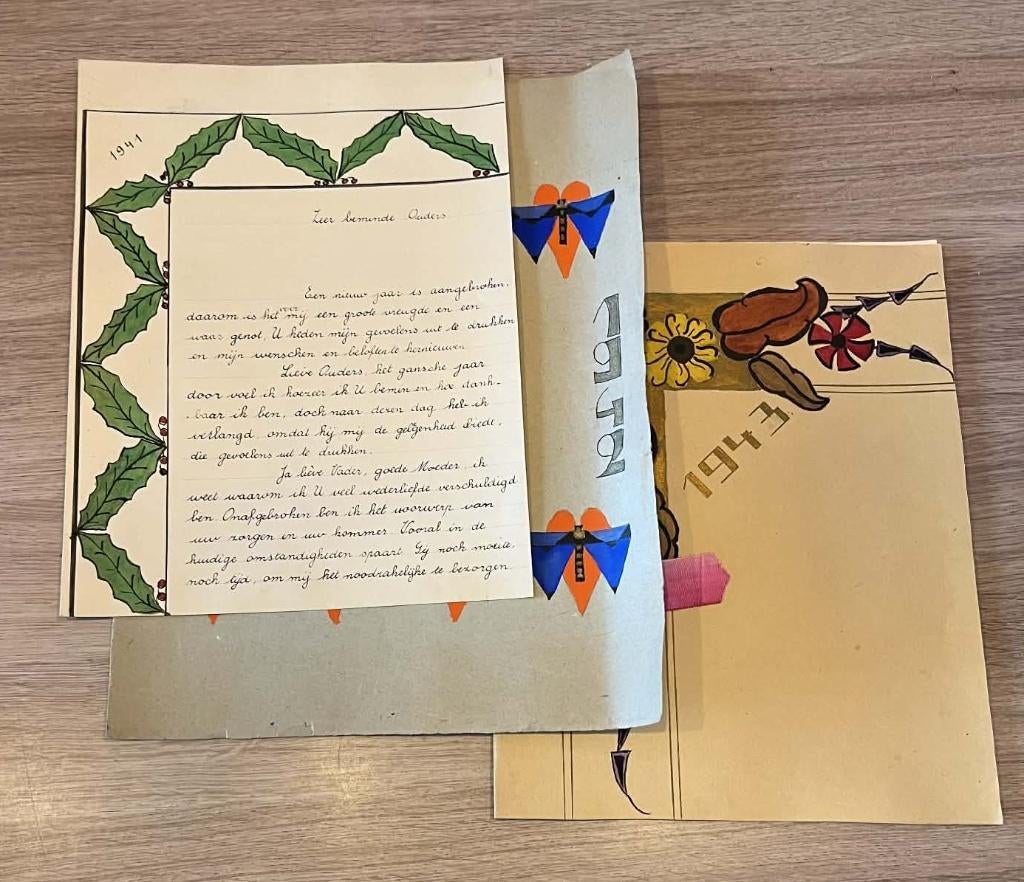 1941
Zeer beminde Ouders.
Een nieuw jaar is aangebroken,
daarom is het voor mij een groote vreugde en een
waar genot, U heden mijn gevoelens uit te drukken
en mijn wenschen en beloften te hernieuwen
Lieve Ouders, het gansche jaar
door voel ik hoezeer ik U bemin en hoe dank-
-baar ik ben, doch naar dezen dag heb ik
verlangd, omdat hij mij de gelegenheid biedt,
die gevoelens uit te drukken.
Ja liève Vader, goede Moeder, ik
weet waarom ik U veel wederliefde verschuldigd
ben. Onafgebroken ben ik het voorwerp van
uw zorgen en uw kommer. Vooral in de
huidige omstandigheden spaart Gij noch moeite,
noch tijd, om mij het noodzakelijke te bezorgen
1942
1943